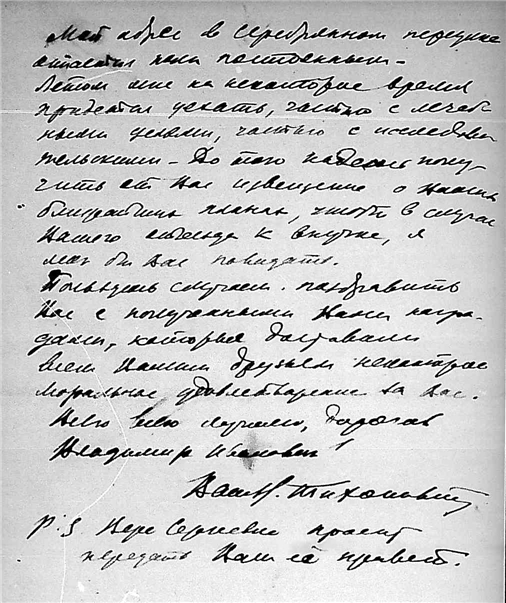 Мой адрес в Серебряном переулке
остается пока постоянным –
Летом мне на некоторое время
придется уехать, частью с лечеб
ными целями, частью с исследова
тельскими – До того надеюсь полу-
чить от Вас извещение о Ваших
ближайших планах, чтобы в случае
Вашего отъезда к внучке, я
мог бы Вас повидать.
Пользуюсь случаем поздравить
Вас с полученными Вами награ-
дами, которые доставили
всем Вашим друзьям некоторое
моральное удовлетворение за Вас.
Всего всего лучшего, дорогой
Владимир Иванович!
Ваш Н. Тихонович
P.S Вера Сергеевна просит
передать Вам её привет.